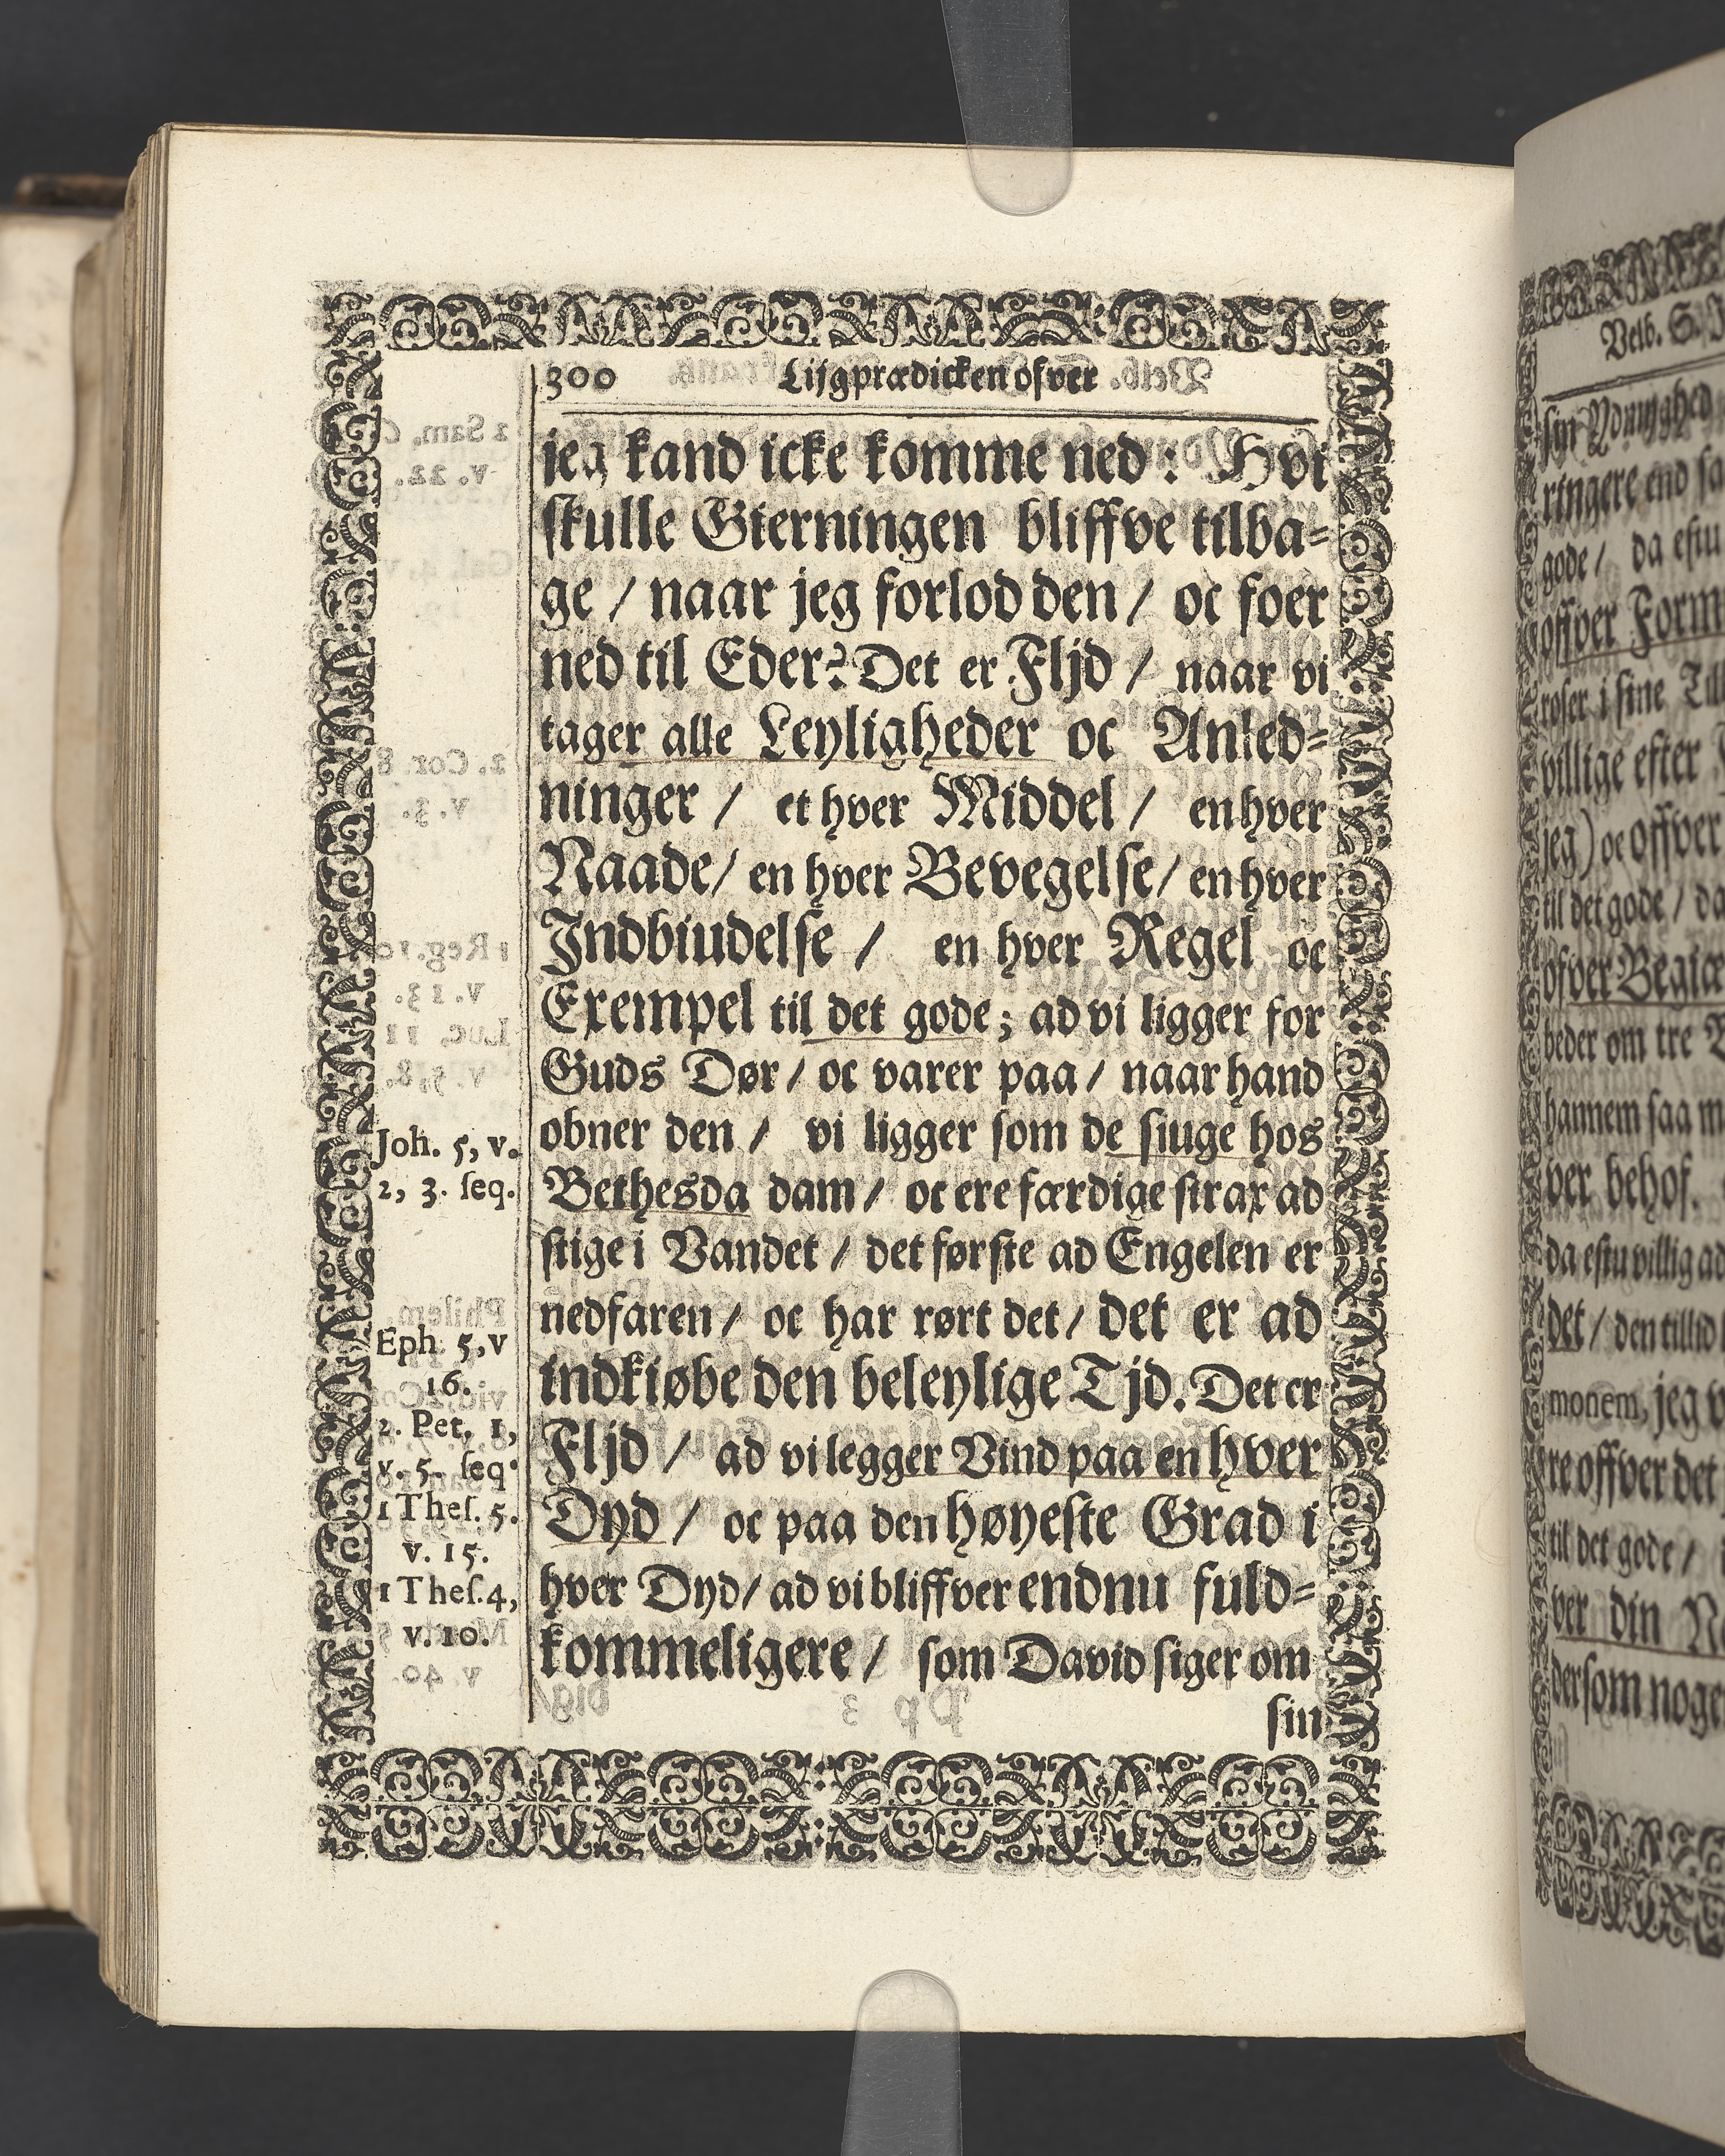 300 Lijgprædicken ofver
jeg kand icke komme ned: Hvi
skulle Gierningen bliffve tilba=
ge / naar jeg forlod den / oc foer
ned til Eder? Det er Fljd / naar vi
tager alle Leyligheder oc Anled=
ninger / et hver Middel / en hver
Naade / en hver Bevegelse / en hver
Indbiudelse / en hver Regel oc
Exempel til det gode; ad vi ligger for
Guds Dør / oc varer paa / naar hand
obner den / vi ligger som de siuge hos
Bethesda dam / oc ere færdige strax ad
stige i Vandet / det første ad Engelen er
nedfaren / oc har rørt det / det er ad
indkiøbe den beleylige Tjd. Det er
Fljd / ad vi legger Vind paa en hver
Dyd / oc paa den høyeste Grad i
hver Dyd / ad vi bliffver endnu fuld=
kommeligere / som David siger om
sin
Joh. 5, v.
2, 3. seq.
Eph. 5, v
16.
2. Pet. 1,
v. 5. seq.
1 Thes. 5.
v. 15.
1 Thes. 4,
v. 10.
Velb. S.
ringere end
gode / da
offver
villige efter
jeg) oc offver
til det gode / da
beder om tre
hannem saa
ver behof.
det /
monem, jeg
re offver det
til det gode /
ver din
dersom noge